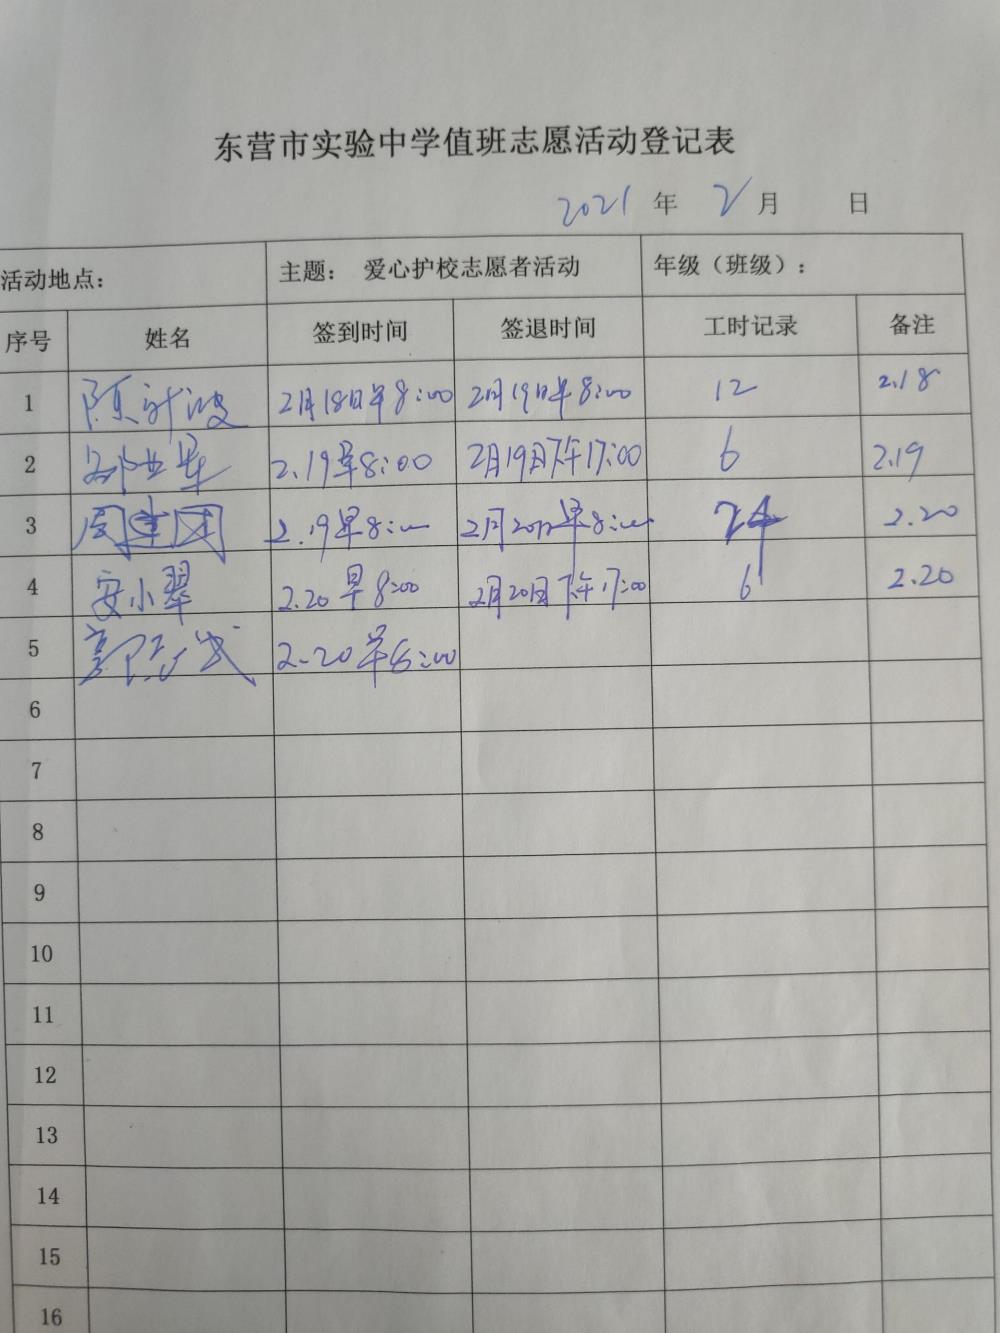 东营市实验中学值班志愿活动登记表
2021 年 2 月 日
活动地点： 主题： 爱心护校志愿者活动 年级（班级）：
序号 姓名 签到时间 签退时间 工时记录 备注
1 2月18日早8:00 2月19日早8:00 12 2.18
2 2.19早8:00 2月19日下午17:00 6 2.19
3 周建国 2.19早8:00 2月20日早8:00 24 2.20
4 安小翠 2.20早8:00 2月20日下午17:00 6 2.20
5 2.20早8:00
6
7
8
9
10
11
12
13
14
15
16